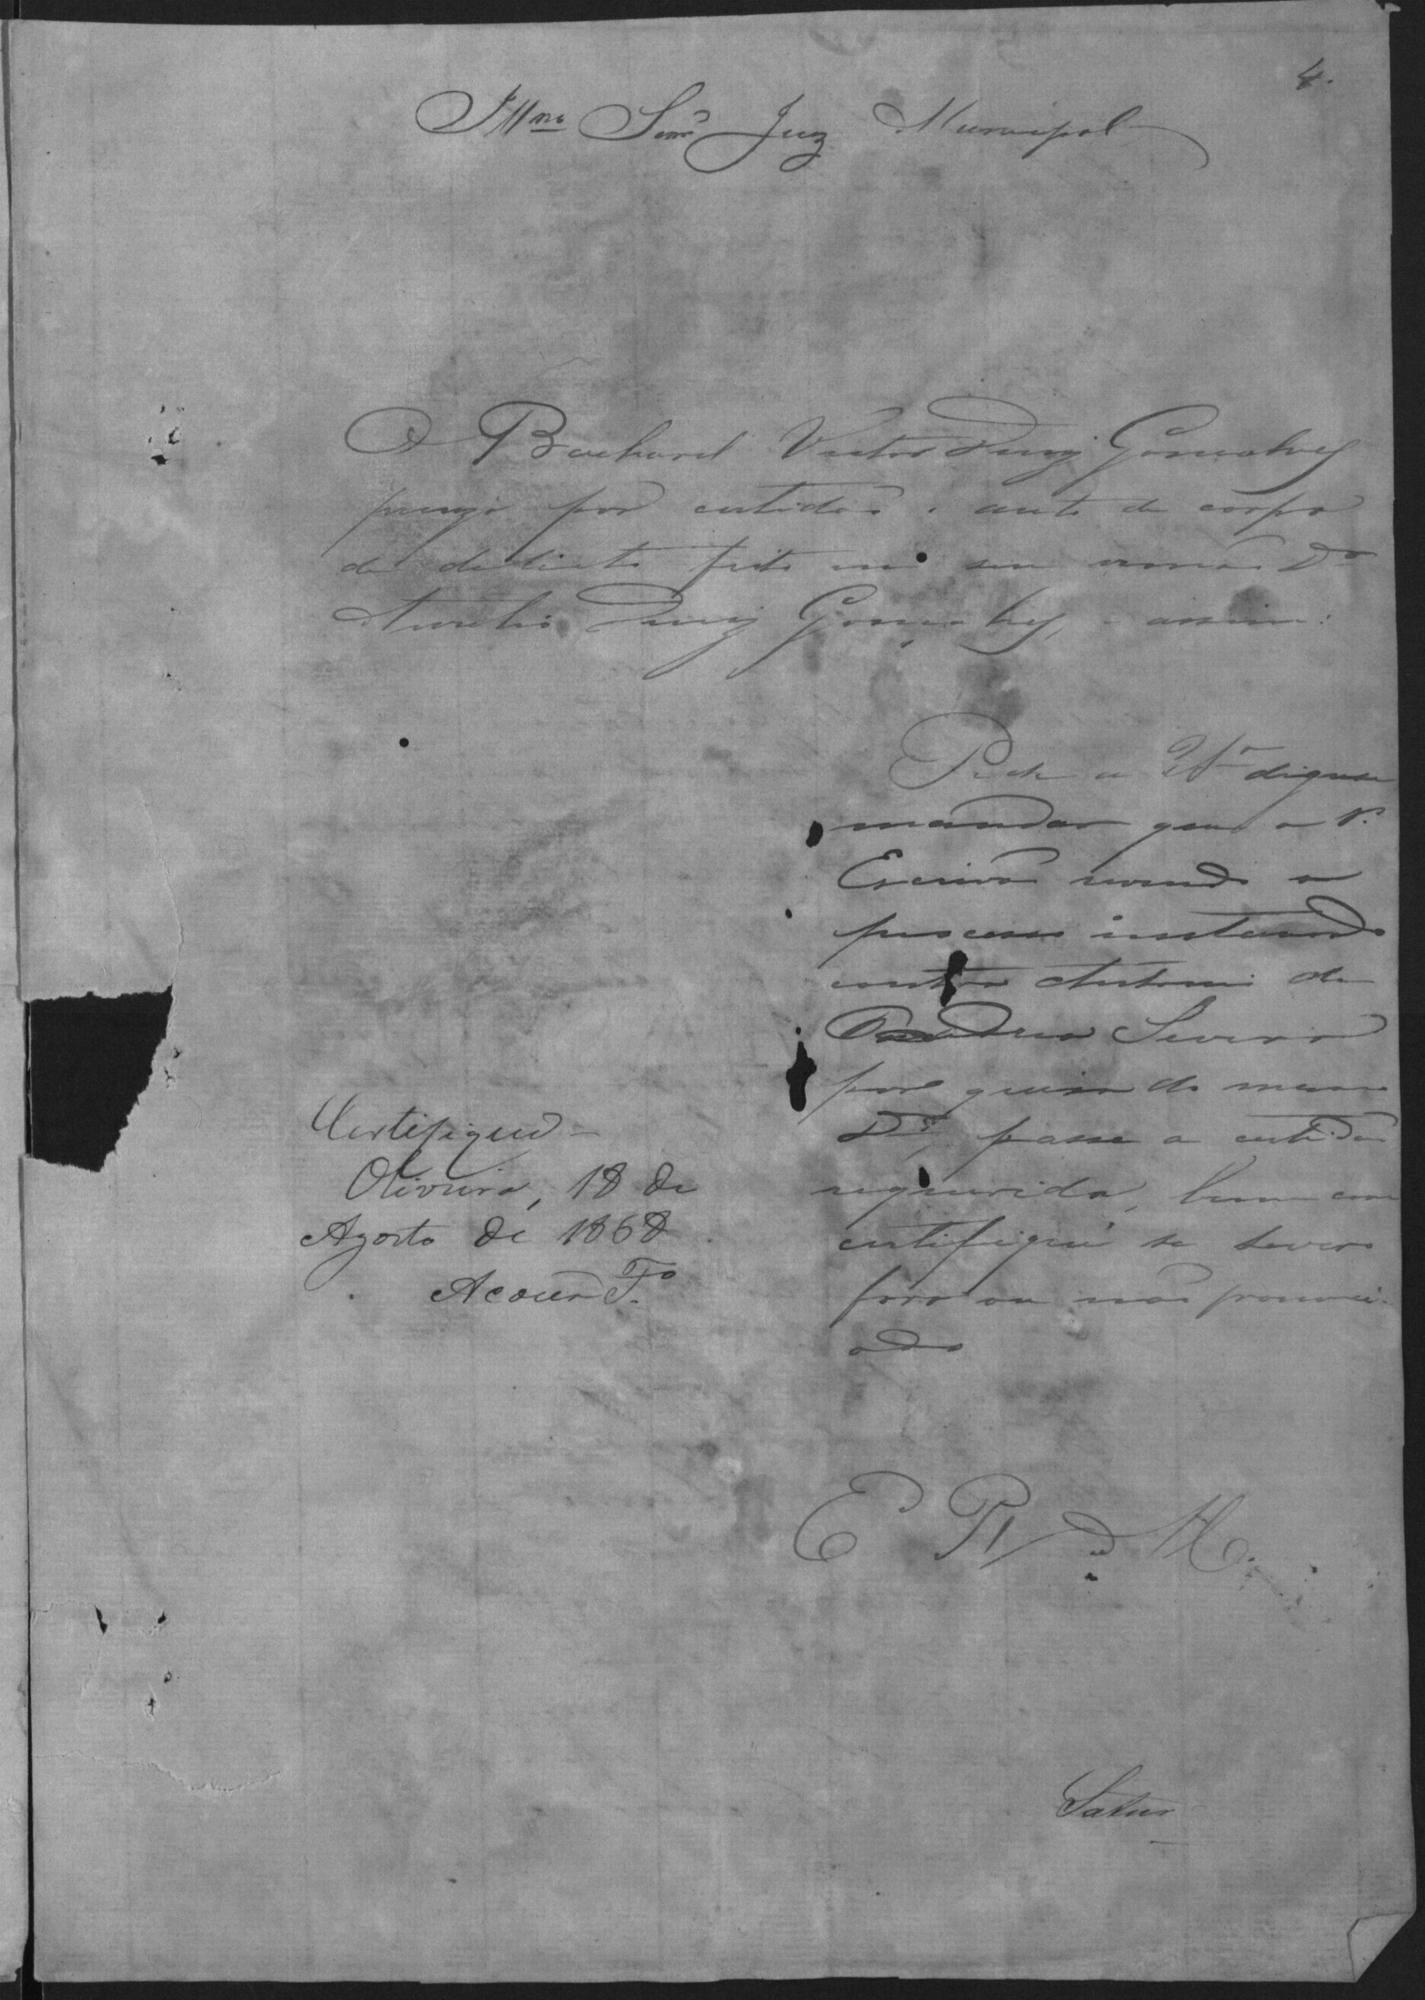 4.
Illmo Senr Juiz Municipal
O Bacharel Victor Diniz Gonçalves
precisa por certidão o auto de corpo
de delicto feito em seu irmão Dor
Aurelio Diniz Gonçalves, e assim:
Pede a VSa digne-se
mandar que o
Escrivão revendo o
processo instaurado
contra Antonio de
Severo
por queixa do mesmo
Dr, passe a certidão
requerida, bem como
certifique se Severo
fora ou não pronunci-
ado
E R M
Certifique
Oliveira, 18 de
Agosto de 1868